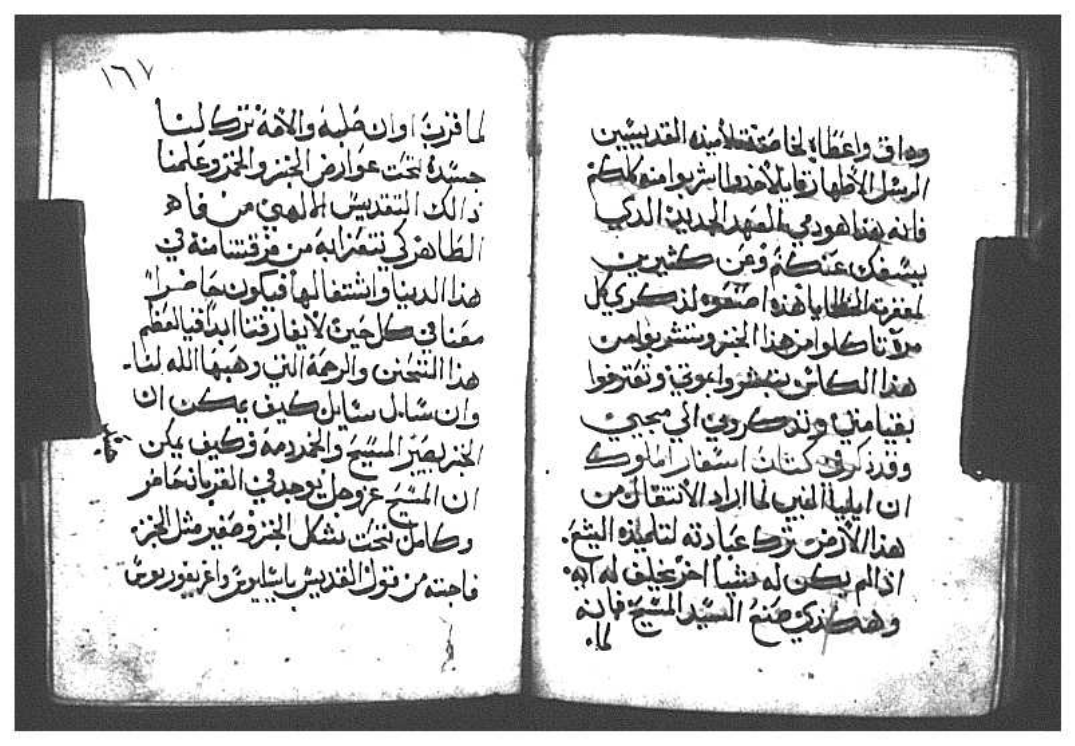 وذاق واعطاه لخاصته تلاميذه القديسين
الرسل الاطهار قايلا خذوا اشربوا منه كلكم
فانه هذا هو دمي العهد الجديد الدي
يسفك عنكم وعن كثيرين
لمغفرة الخطايا هذه اصنعوه لذكري كل
مرة تاكلوا من هذا الخبز وتشربوا من
هذا الكاس بتبشروا بموتي وتعترفوا
بقيامتي وتدكروني الي مجيي
وقد ذكر في كتاب اسفار الملوك
ان ايلياا النبي لما اراد الانتقال من
هذا الارض ترك عبادته لتلميذه اليشع.
اذ لم يكن له شيا اخر يخلف له ابه.
وهكذي صنع السيد المسيح فانه
لما.
١٦٧
لما قرب اوان صلبه والامه ترك لنا
جسده تحت عوارض الخبز والخمر وعلمنا
ذالك التقديس الالهي من فاه
الطاهر كي نتعزا به من فرقتنا منه في
هذا الدنيا واشتغالها فيكون حاضرا
معنا في كل حين لا يفارقنا ابدا فيالعظم
هذا التحنن والرحمة التي وهبها الله لنا.
وان سايل سايل كيف يمكن ان
الخبز يصير المسيح والخمر دمه وكيف يمكن
ان المسيح عز وجل يوجد في القربان حاضر
وكامل تحت شكل الخبز وصغير مثل الخبزه
فاجبته من قول القديس باسيليوس واغريغوريوس